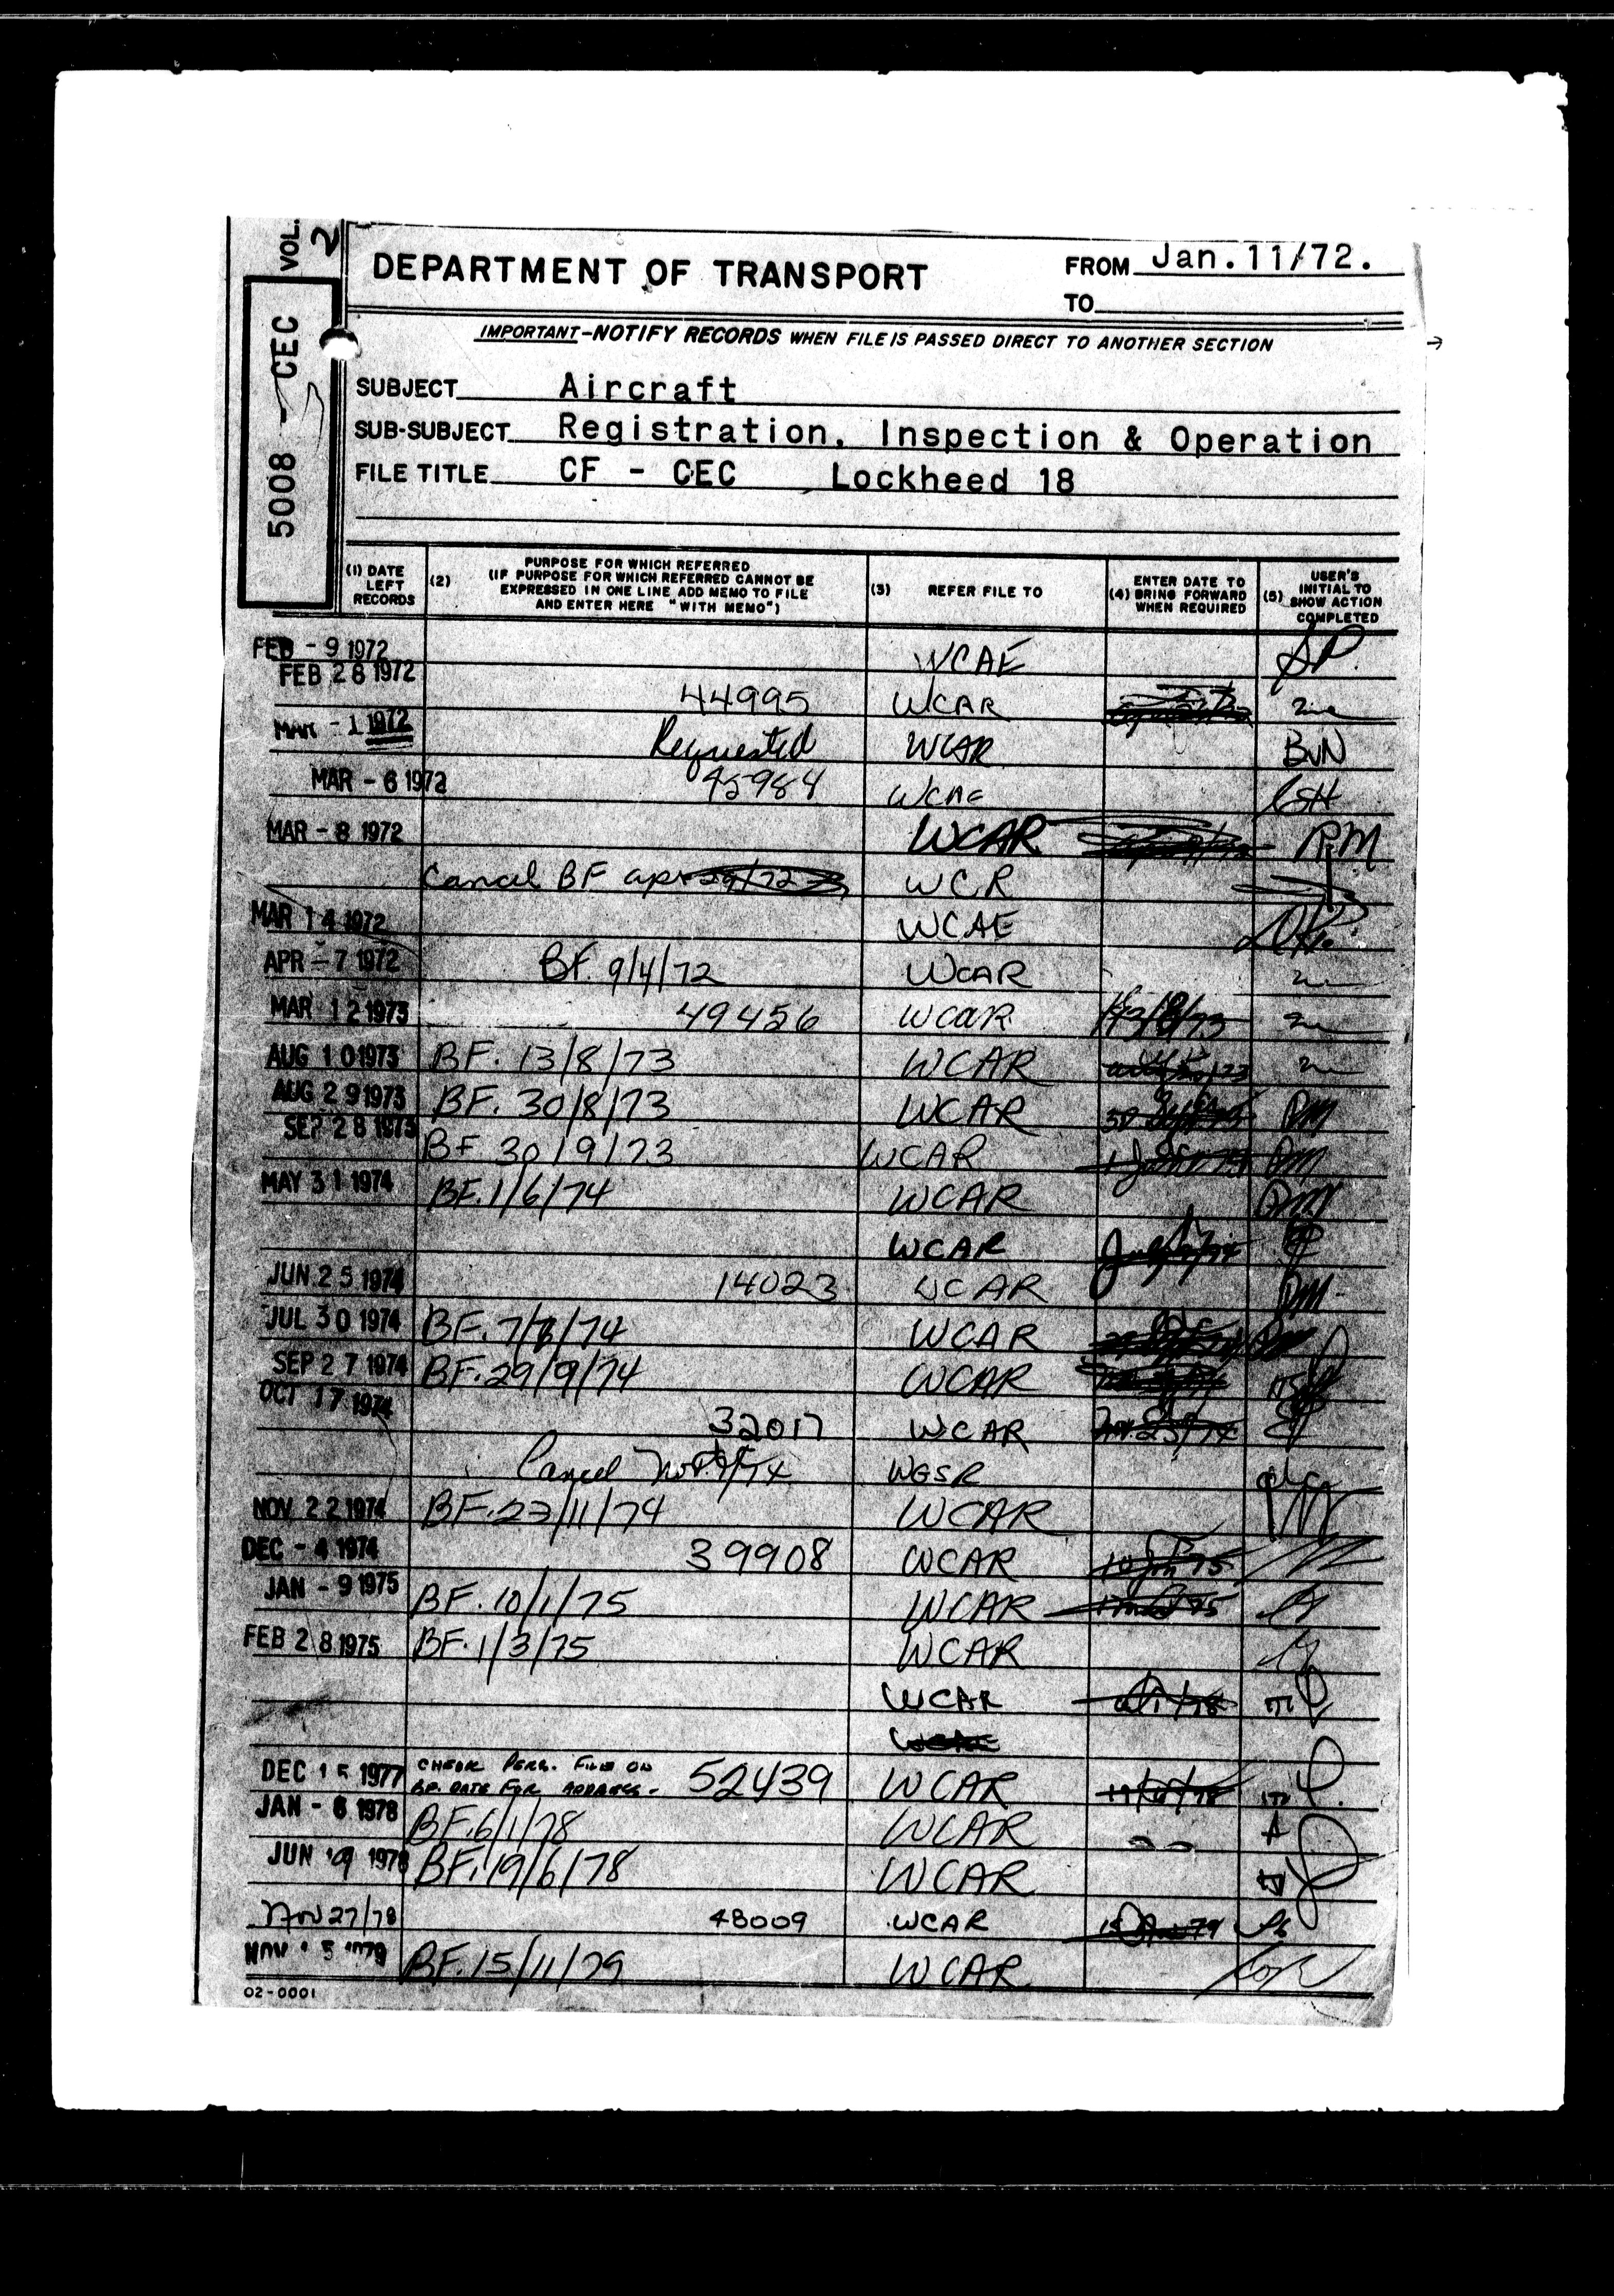 VOL. 2
5008 - CEC
DEPARTMENT OF TRANSPORT
FROM Jan.11/72.
TO
IMPORTANT-NOTIFY RECORDS WHEN FILE IS PASSED DIRECT TO ANOTHER SECTION
SUBJECT Aircraft
SUB-SUBJECT Registration, Inspection & Operation
FILE TITLE CF - CEC Lockheed 18
(1) DATE LEFT RECORDS
(2) PURPOSE FOR WHICH REFERRED
(IF PURPOSE FOR WHICH REFERRED CANNOT BE
EXPRESSED IN ONE LINE ADD MEMO TO FILE
AND ENTER HERE "WITH MEMO")
(3) REFER FILE TO
(4) ENTER DATE TO BRING FORWARD WHEN REQUIRED
(5) USER'S INITIAL TO SHOW ACTION COMPLETED
FEB - 9 1972 WCAE
FEB 28 1972 44995 WCAR
MAR - 1 1972 Requested WCAR BVN
MAR - 6 1972 45984 WCAE
MAR - 8 1972 WCAR RM
Cancel BF apr 29/72 WCR
MAR 14 1972 WCAE
APR - 7 1972 BF. 9/4/72 WCAR
MAR 12 1973 49456 WCAR
AUG 10 1973 BF. 13/8/73 WCAR
AUG 29 1973 BF. 30/8/73 WCAR RM
SEP 28 1973 BF 30/9/73 WCAR RM
MAY 31 1974 BF. 1/6/74 WCAR RM
WCAR
JUN 25 1974 14023 WCAR RM
JUL 30 1974 BF. 7/8/74 WCAR
SEP 27 1974 BF. 29/9/74 WCAR
OCT 17 1974 32017 WCAR
Cancel WGSR
NOV 22 1974 BF. 23/11/74 WCAR
DEC - 4 1974 39908 WCAR
JAN - 9 1975 BF. 10/1/75 WCAR
FEB 28 1975 BF. 1/3/75 WCAR
WCAR
DEC 15 1977 CHECK PERR. FILE ON
BF. DATE FOR ADDRESS - 52439 WCAR
JAN - 6 1978 BF. 6/1/78 WCAR
JUN 19 1978 BF. 19/6/78 WCAR
Nov 27/78 48009 WCAR
NOV 15 1979 BF. 15/11/79 WCAR
02-0001